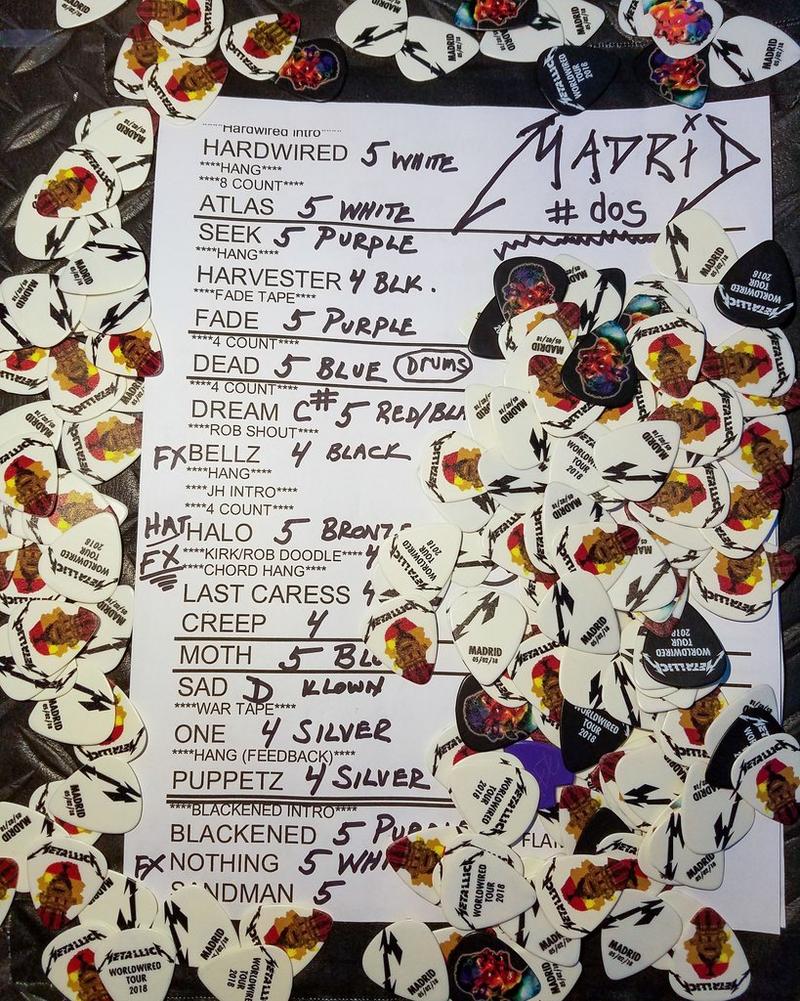 MADRID
# dos
""""Hardwired Intro""""
HARDWIRED 5 WHITE
****HANG****
****8 COUNT****
ATLAS 5 WHITE
SEEK 5 PURPLE
****HANG****
HARVESTER 4 BLK.
****FADE TAPE****
FADE 5 PURPLE
****4 COUNT****
DEAD 5 BLUE DRUMS
****4 COUNT****
DREAM C# 5 RED/BLA
****ROB SHOUT****
FX BELLZ 4 BLACK
****HANG****
****JH INTRO****
****4 COUNT****
HAT HALO 5 BRONZE
FX ****KIRK/ROB DOODLE**** 4
****CHORD HANG****
LAST CARESS 4
CREEP 4
MOTH 5 BLU
SAD D KLOWN
****WAR TAPE****
ONE 4 SILVER
****HANG (FEEDBACK)****
PUPPETZ 4 SILVER
****BLACKENED INTRO****
BLACKENED 5 PURPL
FLAM
FX NOTHING 5 WHI
SANDMAN 5
METALLICA
WORLDWIRED
TOUR
2018
MADRID
05/02/18